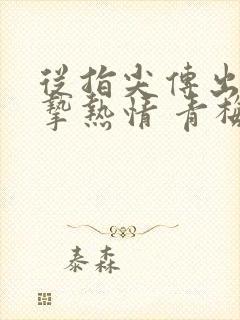 從指尖傳出
摯熱情 青梅
泰森